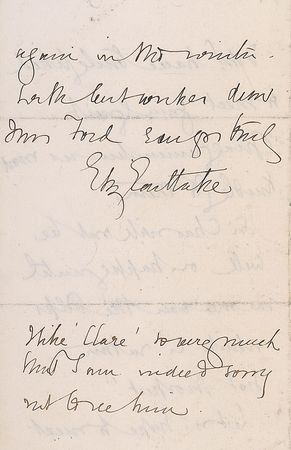 again in the winter.
With best wishes dear
Mrs Ford ever yrs truly
Eliz Eastlake
I like 'Clare' so very much
that I am indeed sorry
not to see him.